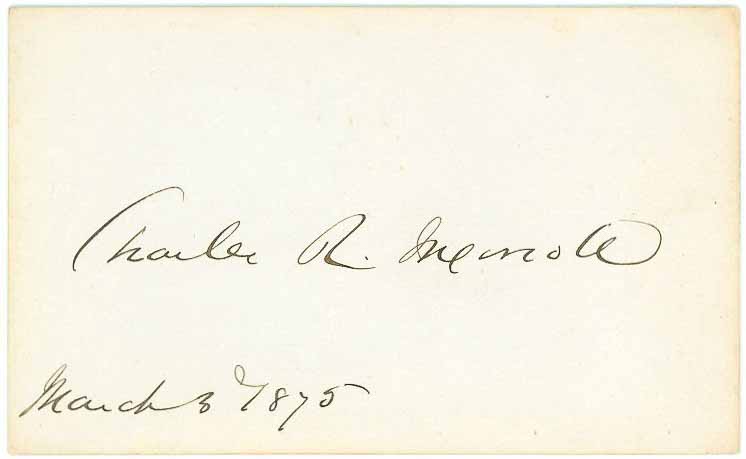 Charles R. Ingersoll
March 3d 1875